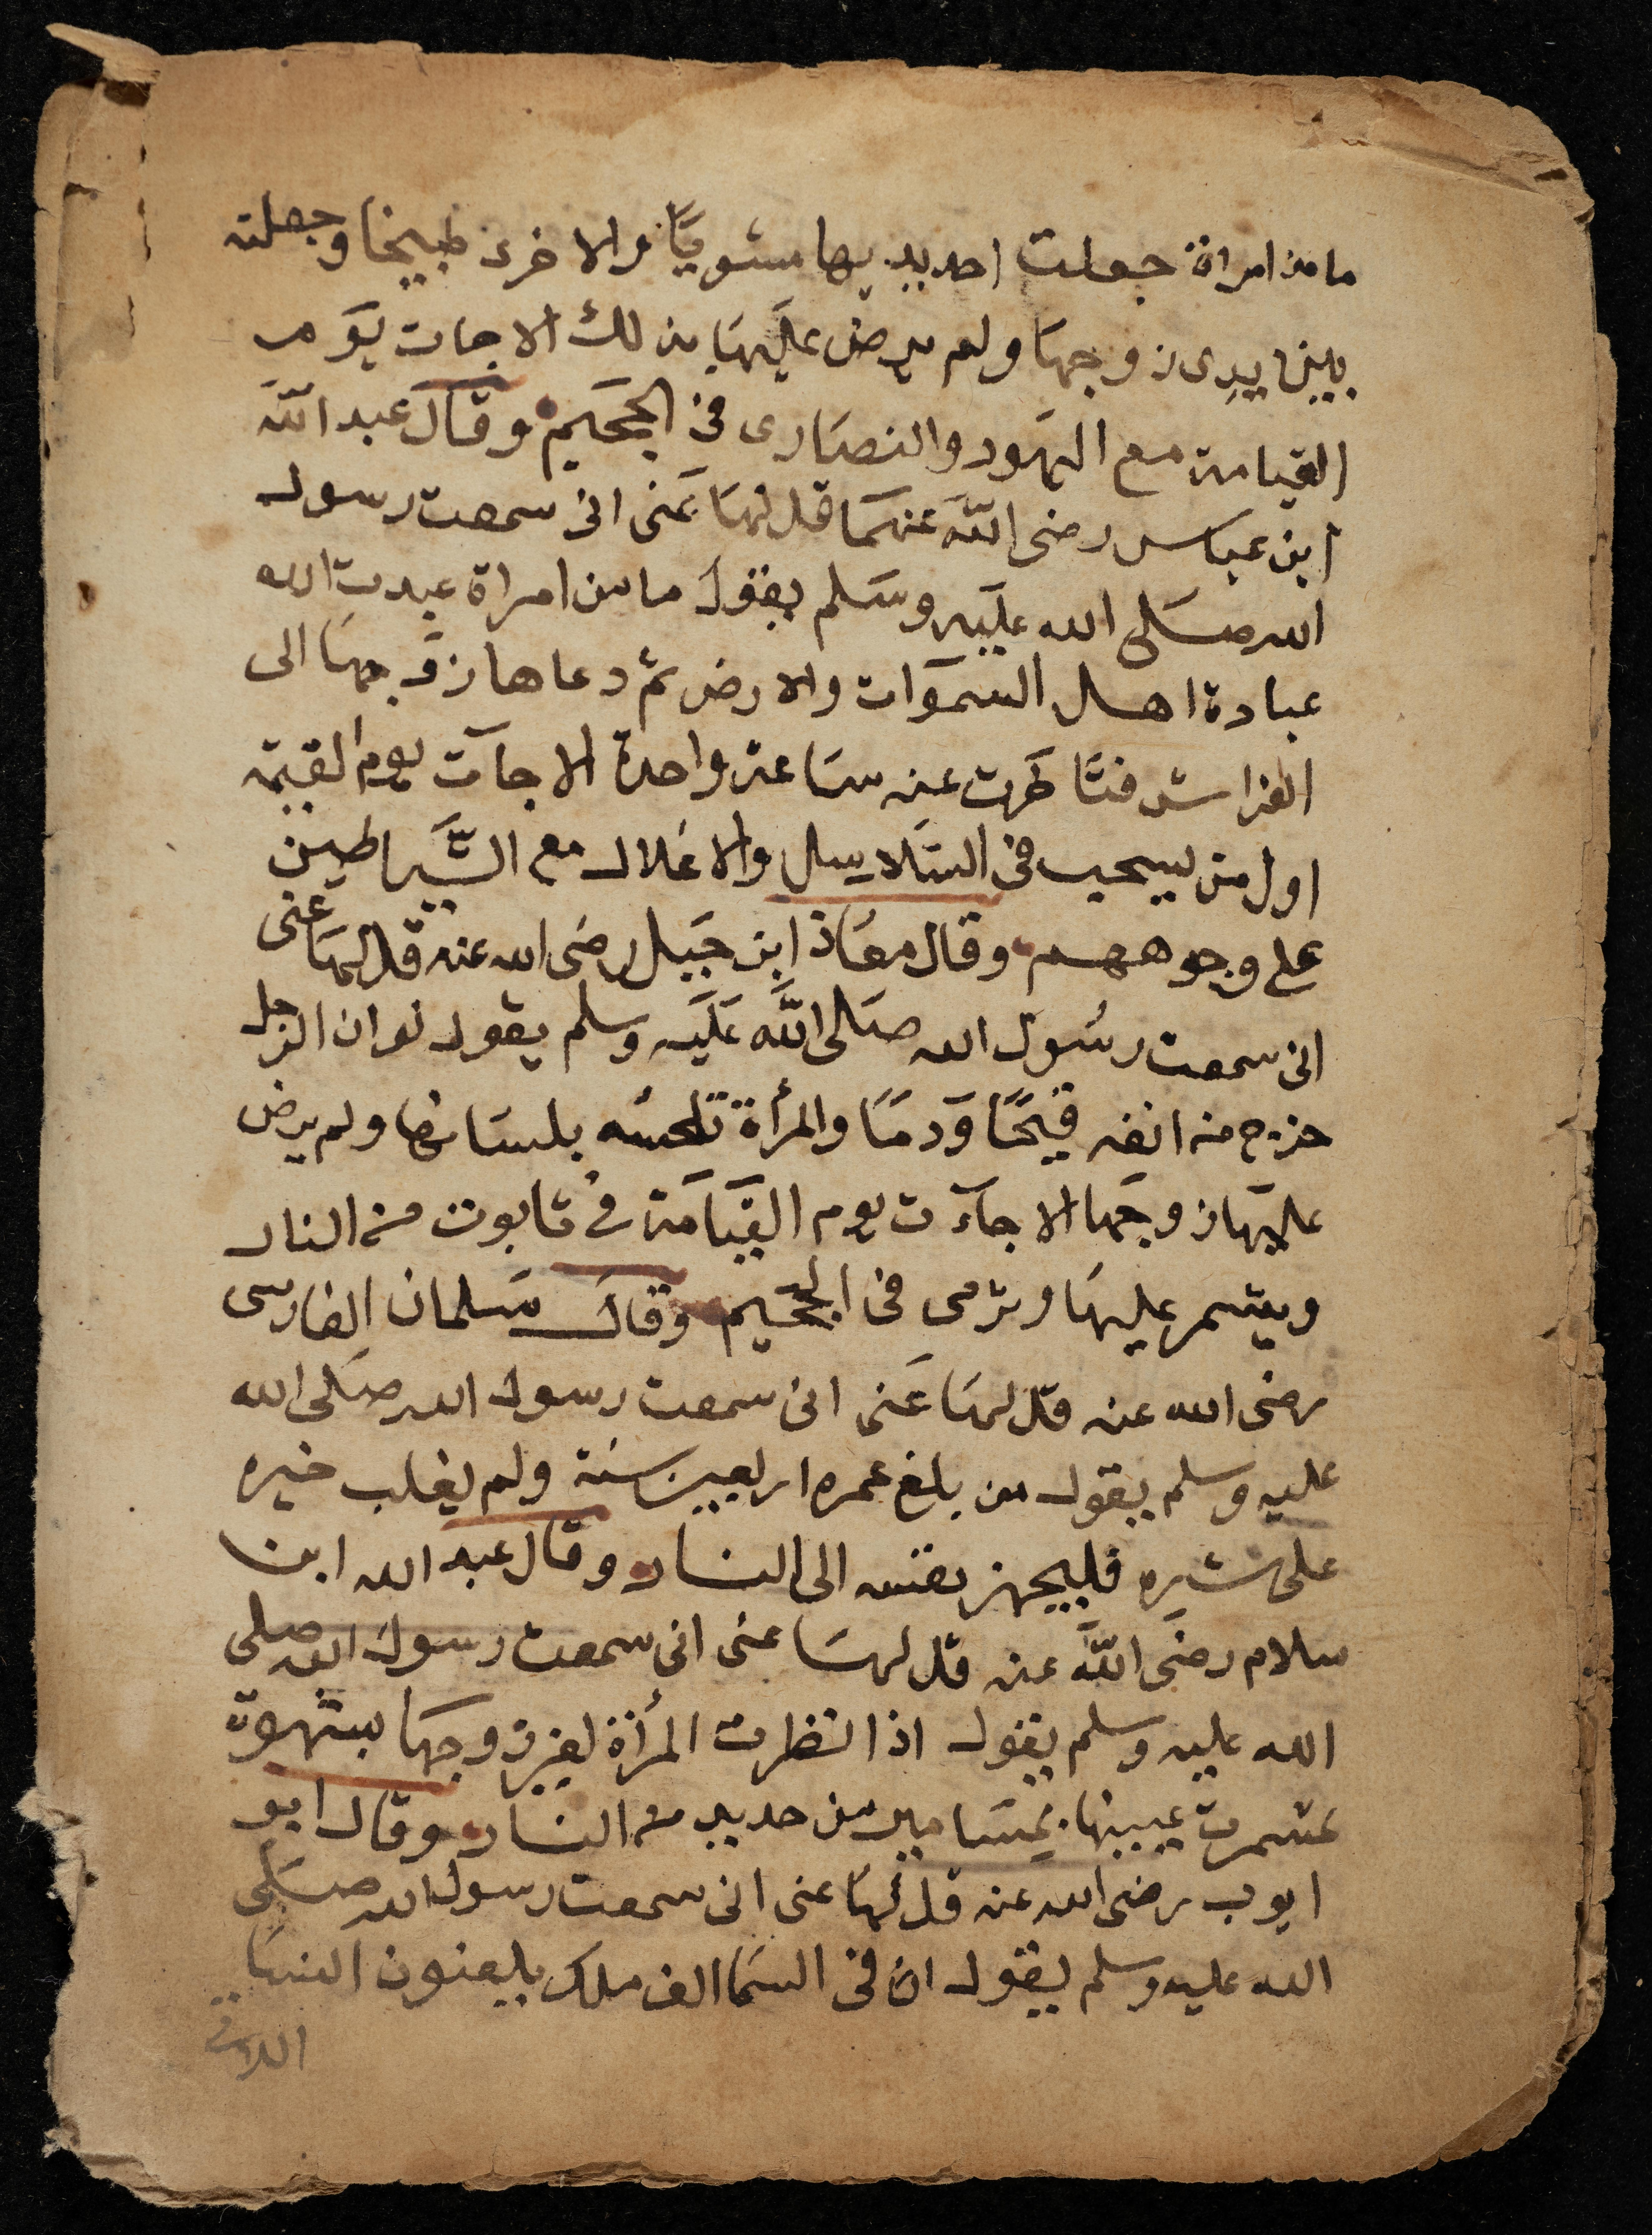 ما من امراة جعلت احد يديها مشويًا والاخرى طبيخا وجعلته
بين يدى زوجها ولم يرض عليها بذلك الا جات يوم
القيامة مع اليهود والنصارى فى الجحيم وقال عبد الله
ابن عباس رضى الله عنهما قل لها عنى انى سمعت رسول
الله صلى الله عليه وسلم يقول ما من امراة عبدت الله
عبادة اهل السموات والارض ثم دعاها زوجها الى
الفراش فتاخرت عنه ساعة واحدة الا جآت يوم القيمة
اول من يسحب فى السلاسل والاغلال مع الشياطين
على وجوههم وقال معاذ ابن جبل رضى الله عنه قل لها عنى
انى سمعت رسول الله صلى الله عليه وسلم يقول لو ان الرجل
خرج من انفه قيحًا ودمًا والمرأة تلحسه بلسانها ولم يرض
عليها زوجها الا جآت يوم القيامة فى تابوت من النار
ويسمر عليها وترمى فى الجحيم وقال سلمان الفارسى
رضى الله عنه قل لها عنى انى سمعت رسول الله صلى الله
عليه وسلم يقول من بلغ عمره اربعين سنة ولم يغلب خيره
على شره فليجهز نفسه الى النار وقال عبد الله ابن
سلام رضى الله عنه قل لها عنى انى سمعت رسول الله صلى
الله عليه وسلم يقول اذا نظرت المرأة لغير زوجها بشهوة
سمرت عينها بمسامير من حديد من النار وقال ابو
ايوب رضى الله عنه قل لها عنى انى سمعت رسول الله صلى
الله عليه وسلم يقول ان فى السما الف ملك يلعنون النسا
اللاتى